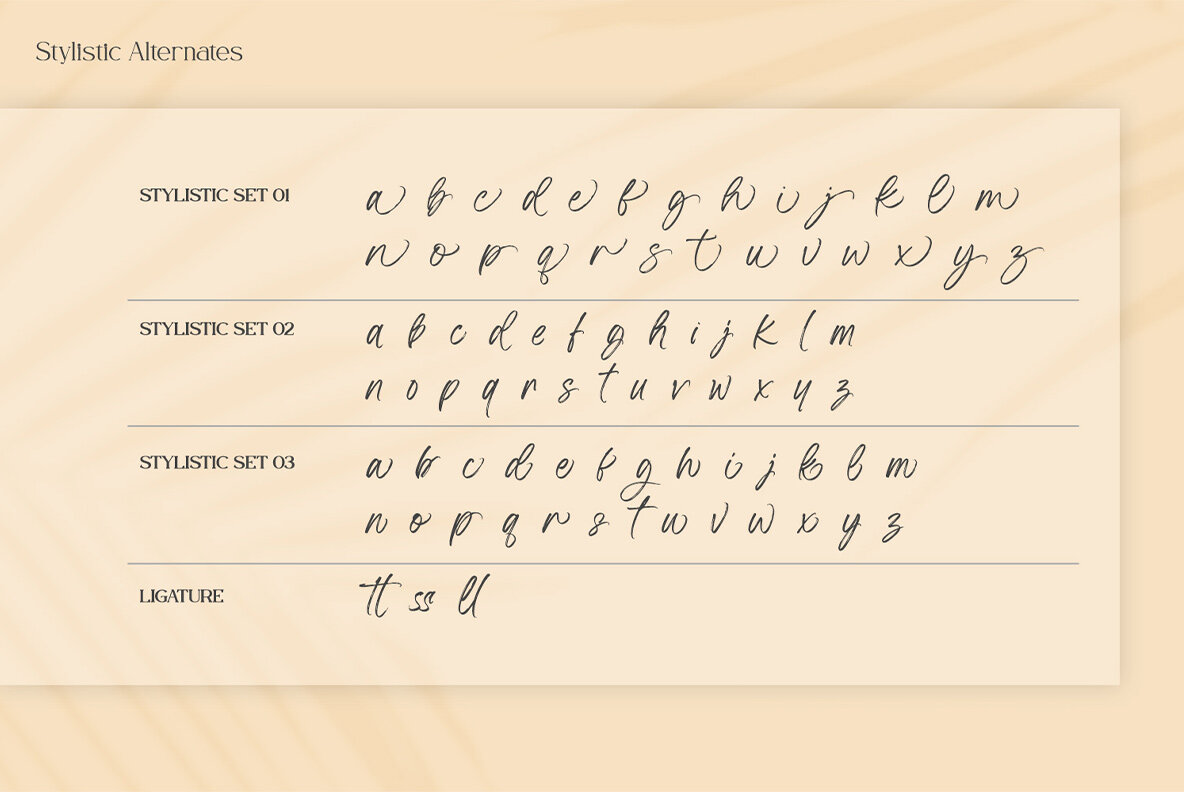 Stylistic Alternates
STYLISTIC SET 01
a b c d e f g h i j k l m
n o p q r s t u v w x y z
STYLISTIC SET 02
a b c d e f g h i j k l m
n o p q r s t u v w x y z
STYLISTIC SET 03
a b c d e f g h i j k l m
n o p q r s t u v w x y z
LIGATURE
tt ss ll